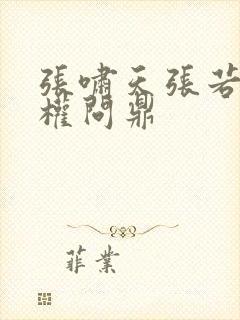 張嘯天張若
權問鼎
菲業